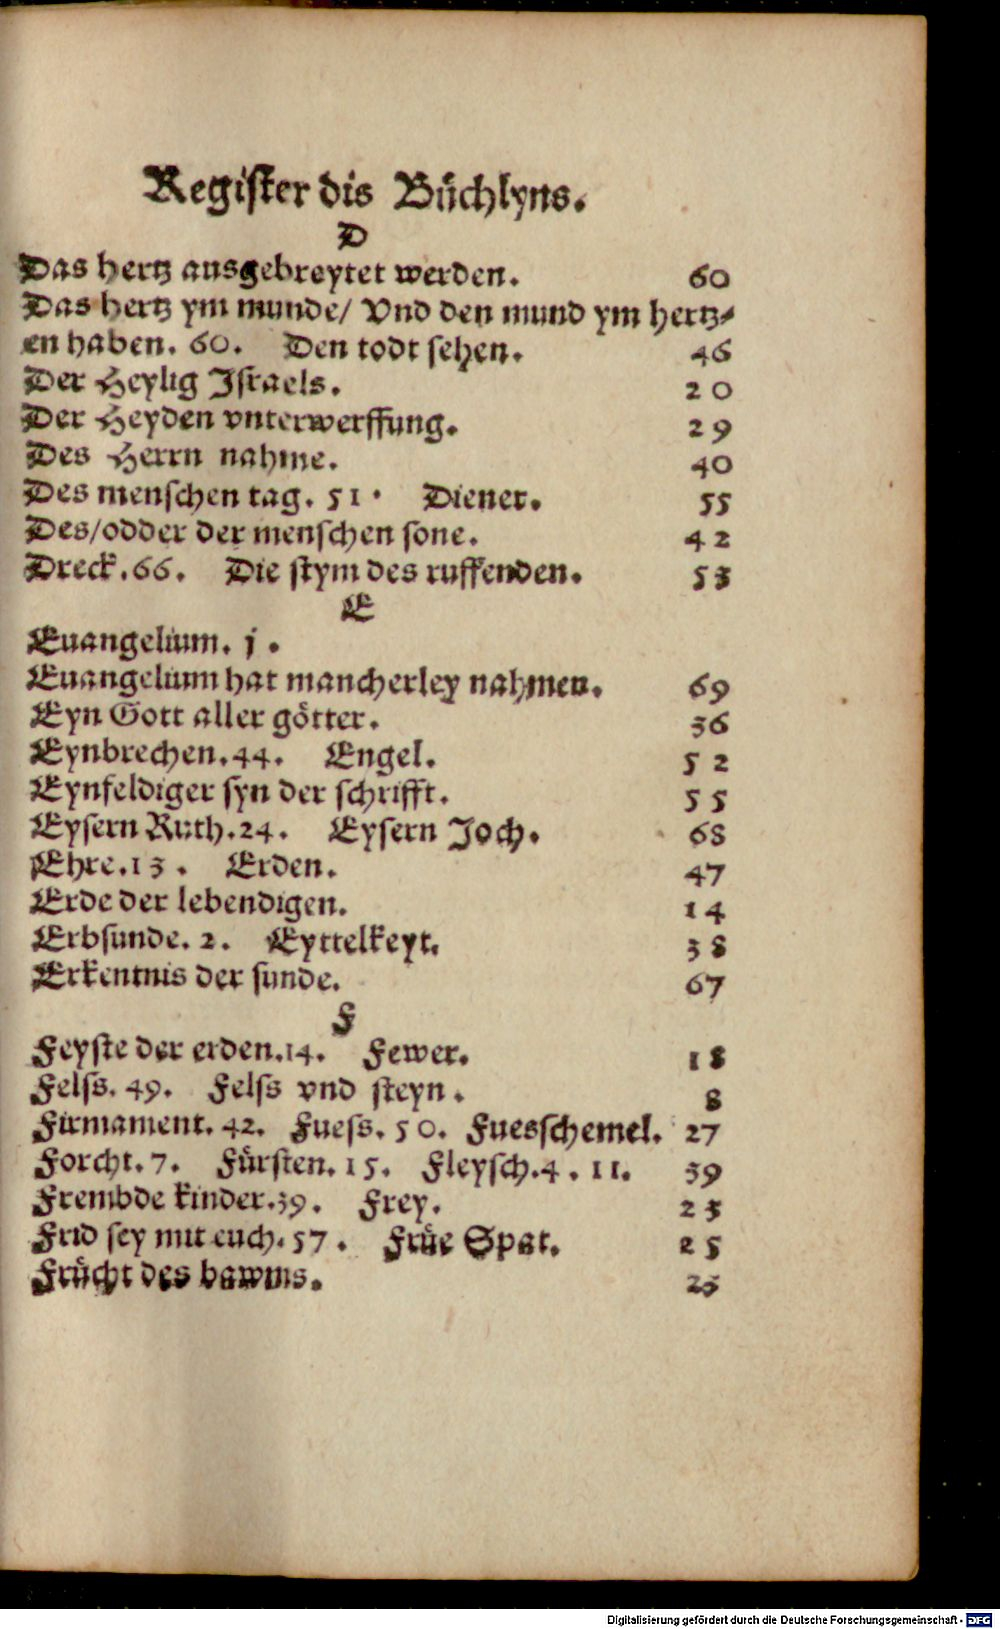 Register dis Bůchlyns.
D
Das hertz ausgebreytet werden. 60
Das hertz ym munde/ Vnd den mund ym hertz⸗
en haben. 60. Den todt sehen. 46
Der Heylig Israels. 20
Der Heyden vnterwerffung. 29
Des Herrn nahme. 40
Des menschen tag. 51. Diener. 55
Des/odder der menschen sone. 42
Dreck.66. Die stym des ruffenden. 53
E
Euangelium. j.
Euangelium hat mancherley nahmen. 69
Eyn Gott aller götter. 36
Eynbrechen.44. Engel. 52
Eynfeldiger syn der schrifft. 55
Eysern Ruth.24. Eysern Joch. 68
Ehre.13. Erden. 47
Erde der lebendigen. 14
Erbsunde. 2. Eyttelkeyt. 38
Erkentnis der sunde. 67
F
Feyste der erden.14. Fewer. 18
Felss. 49. Felss vnd steyn. 8
Firmament. 42. Fuess. 50. Fuesschemel. 27
Forcht.7. Fürsten.15. Fleysch.4.11. 39
Frembde kinder.39. Frey. 23
Frid sey mit euch.57. Früe Spat. 25
Frücht des bawms. 23
Digitalisierung gefördert durch die Deutsche Forschungsgemeinschaft - DFG